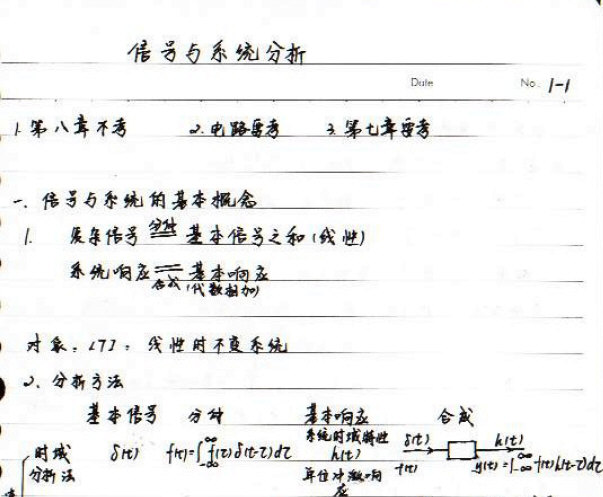 信号与系统分析
Date No. 1-1
1. 第八章不考 2. 电路要考 3. 第七章要考
一、信号与系统的基本概念
1. 复杂信号 分解 基本信号之和(线性)
系统响应 基本响应
合成 (代数相加)
对象: LTI: 线性时不变系统
2、分析方法
基本信号 分解 基本响应 合成
时域 δ(t) f(t)=∫_{-∞}^{∞} f(τ)δ(t-τ)dτ 系统时域特性 h(t) δ(t) h(t)
分析法 单位冲激响应 f(t) y(t)=∫_{-∞}^{∞} f(τ)h(t-τ)dτ